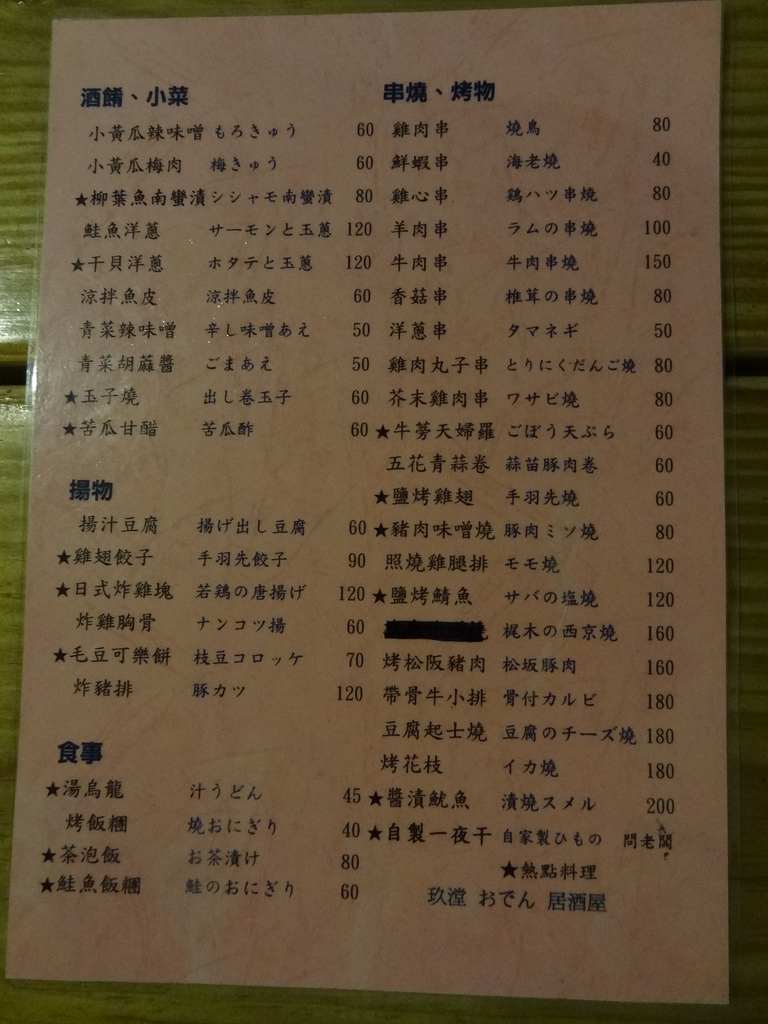 酒餚、小菜
小黃瓜辣味噌 もろきゅう 60
小黃瓜梅肉 梅きゅう 60
★柳葉魚南蠻漬 シシャモ南蠻漬 80
鮭魚洋蔥 サーモンと玉蔥 120
★干貝洋蔥 ホタテと玉蔥 120
涼拌魚皮 涼拌魚皮 60
青菜辣味噌 辛し味噌あえ 50
青菜胡蔴醬 ごまあえ 50
★玉子燒 出し卷玉子 60
★苦瓜甘醋 苦瓜酢 60
揚物
揚汁豆腐 揚げ出し豆腐 60
★雞翅餃子 手羽先餃子 90
★日式炸雞塊 若鶏の唐揚げ 120
炸雞胸骨 ナンコツ揚 60
★毛豆可樂餅 枝豆コロッケ 70
炸豬排 豚カツ 120
食事
★湯烏龍 汁うどん 45
烤飯糰 燒おにぎり 40
★茶泡飯 お茶漬け 80
★鮭魚飯糰 鮭のおにぎり 60
串燒、烤物
雞肉串 燒鳥 80
鮮蝦串 海老燒 40
雞心串 鶏ハツ串燒 80
羊肉串 ラムの串燒 100
牛肉串 牛肉串燒 150
香菇串 椎茸の串燒 80
洋蔥串 タマネギ 50
雞肉丸子串 とりにくだんご燒 80
芥末雞肉串 ワサビ燒 80
★牛蒡天婦羅 ごぼう天ぷら 60
五花青蒜卷 蒜苗豚肉卷 60
★鹽烤雞翅 手羽先燒 60
★豬肉味噌燒 豚肉ミソ燒 80
照燒雞腿排 モモ燒 120
★鹽烤鯖魚 サバの塩燒 120
梶木の西京燒 160
烤松阪豬肉 松坂豚肉 160
帶骨牛小排 骨付カルビ 180
豆腐起士燒 豆腐のチーズ燒 180
烤花枝 イカ燒 180
★醬漬魷魚 漬燒スメル 200
★自製一夜干 自家製ひもの 問老闆
★熱點料理
玖漟 おでん 居酒屋